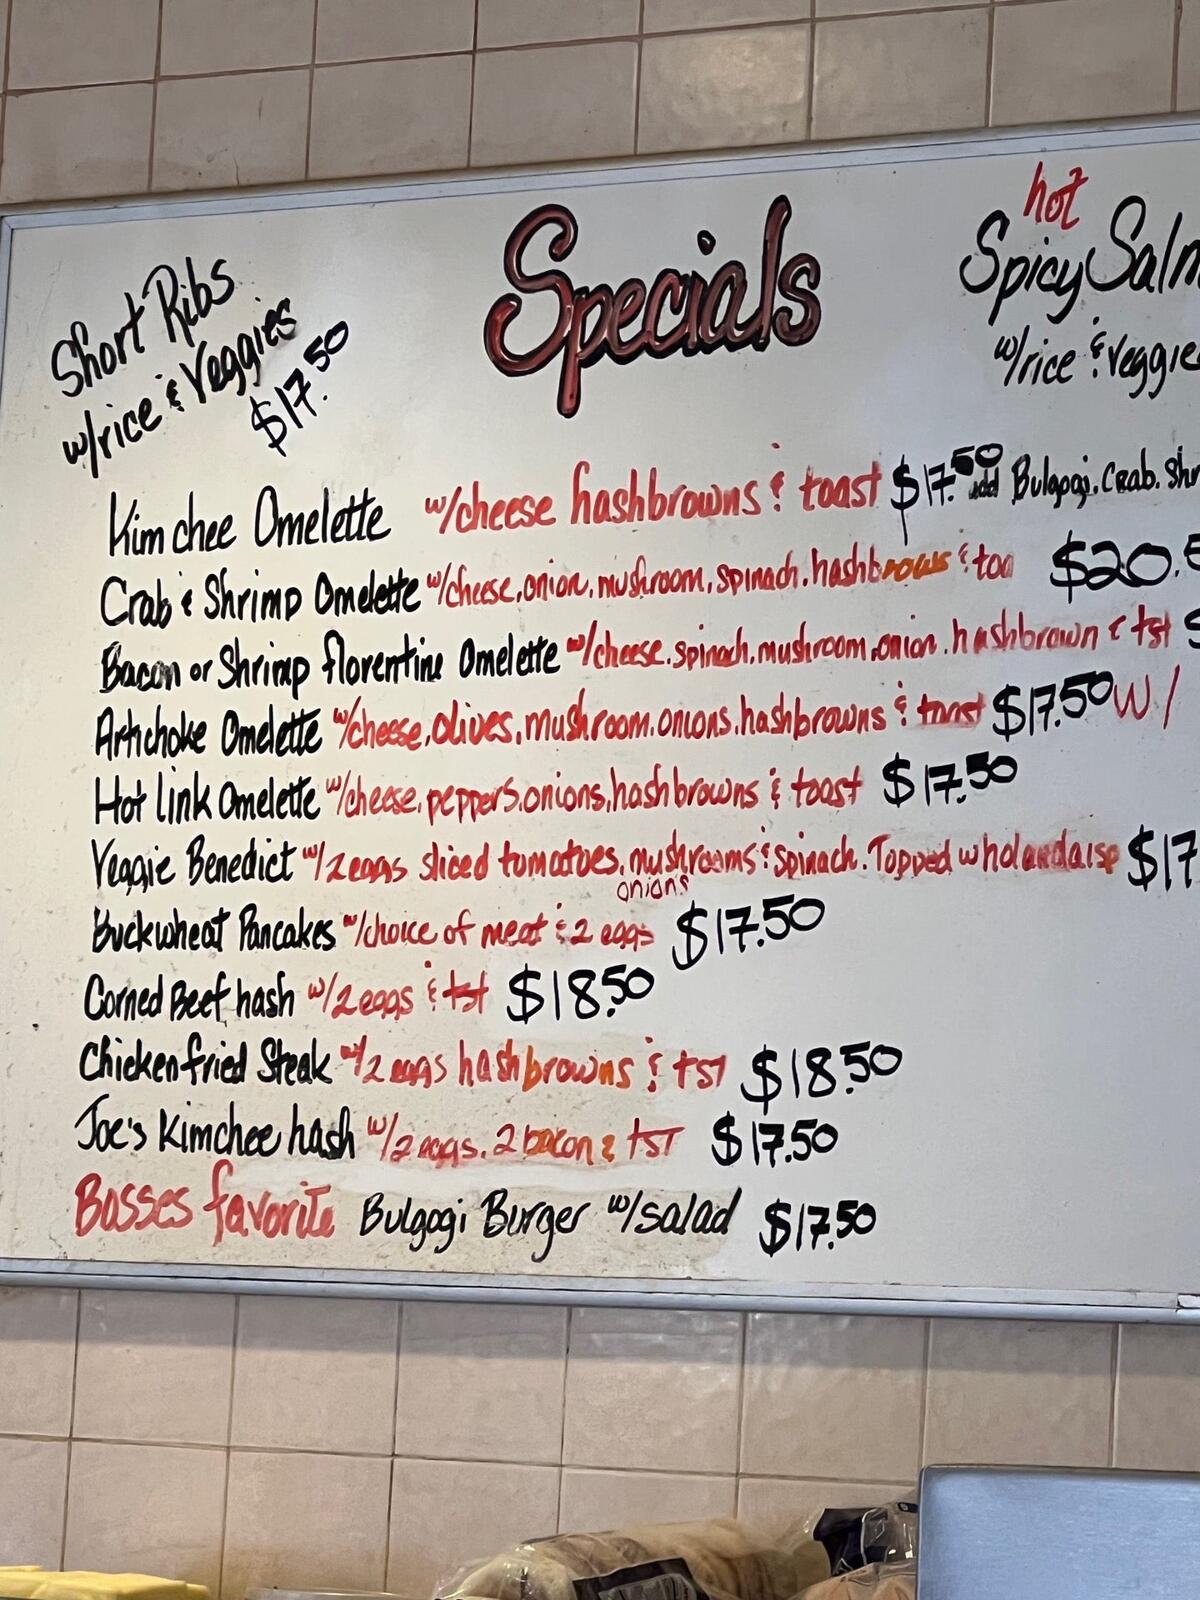 Specials
Short Ribs
w/rice & Veggies
$17.50
hot
Spicy
w/rice & Veggie
Kimchee Omelette w/cheese hashbrowns & toast $17.50 add Bulgogi. Crab.
Crab & Shrimp Omelette w/cheese, onion, mushroom, spinach, hashbrowns & toa $20.5
Bacon or Shrimp florentine Omelette w/cheese, spinach, mushroom, onion, hashbrown & tst $
Artichoke Omelette w/cheese, olives, mushroom, onions, hashbrowns & toast $17.50 w/
Hot link Omelette w/cheese, peppers, onions, hashbrowns & toast $17.50
Veggie Benedict w/2 eggs sliced tomatoes, mushrooms & spinach. Topped w holandaise $17
onions
Buckwheat Pancakes w/choice of meat & 2 eggs $17.50
Corned Beef hash w/2 eggs & tst $18.50
Chicken fried Steak w/2 eggs hashbrowns & tst $18.50
Joe's Kimchee hash w/2 eggs, 2 bacon & tst $17.50
Bosses favorite Bulgogi Burger w/salad $17.50